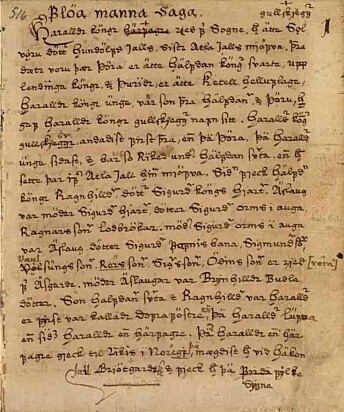 516 Blöa manna Saga.
gullskjegg
Haralldr köngr hárfagre red p Sogne, h átte Sol
vöru dött Hundölfs Jalls, sistr Atla Jalls mjöva, Þra
dætr veru þær Þöra er átte Hálfdan köngr svarte, upp
lendinga köngr, & Þuridr, er átte Ketell helluflage,
Haralldr köngr unge var son þra Hálfdanar & Þöru, h
gaf Haralldr köngr gullskjeggr nafn sitt. Haralldr
gullskjeggr andadist first þra, en þa Þöra, þa Haralldr
unge sidst, & bar so Riked und Halfdan svarta, en h
sette þar ifir Atla Jall hin mjöva. Sid fieck Halfd
köngr Ragnhilld dött Sigurd köngs hjart. Aslaug
var möder Sigurd hjart, dötter Sigurd orms i auga
Ragnars son Lodbrökar. möd Sigurd orms i auga
var Aslaug dötter Sigurd Fofnis bana, Sigmundss
Völsungs son, Reris son, Siga son, Odins son er red [vera]
p Asgarde. möder Aslaugar var Brynhilldr Budla
dötter. Son Halfdan svarta & Ragnhilld var Haralldr
er fyrst var kalladr Dofrafostre, þa Haralldr Lufa
en sidst Haralldr en hárfagre. Þa Haralldr en hár
fagre gieck til Rikis i Noregi, mægdist h vid Hakon
Jall Griötgardss & fieck h þa Firda filke
Sygna